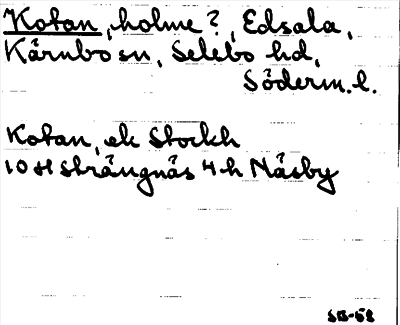 Kotan, holme?, Edsala,
Kärnbo sn, Selebo hd,
Söderm. l.
Kotan, ek Stockh
10 H Strängnäs 4 h Näsby